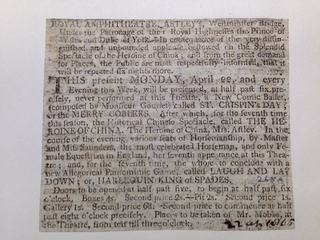 ROYAL AMPHITHEATRE, ASTLEY's, Westminster Bridge,
Under the Patronage of their Royal Highnesses the Prince of
Wales and Duke of York.—In consequence of the very distin-
guished and unbounded applause bestowed on the Splendid
Spectacle of the Heroine of China; and from the great demand
for Places, the Public are most respectfully informed, that it
will be repeated six nights more.
THIS present MONDAY, April 22, and every
Evening this Week, will be presented, at half past six pre-
cisely, never performed at this Theatre, a New Comic Ballet
(composed by Monsieur Gouriet) called ST. CRISPIN's DAY;
or the MERRY COBLERS. After which, for the seventh time
this season, the Historical Chinese Spectacle, called THE HE-
ROINE OF CHINA. The Heroine of China, Mrs. Astley. In the
course of the evening, various feats of Horsemanship, by Master
and Miss Saunders, the most celebrated Horseman, and only Fe-
male Equestrian in England, her seventh appearance at this Thea-
tre; and, for the seventh time, the whole to conclude with a
new Allegorical Pantomimic Game, called LAUGH AND LAY
DOWN; or, HARLEQUIN KING of SPADES.
Doors to be opened at half past five, to begin at half past six
o'clock. Boxes 4s. Second price 2s.—Pit 2s. Second price 1s.
Gallery 1s. Second price 6d. Second price to commence at half
past eight o'clock precisely. Places to be taken of Mr. Mobbs, at
the Theatre, from ten till three o'clock.
22 April 1805